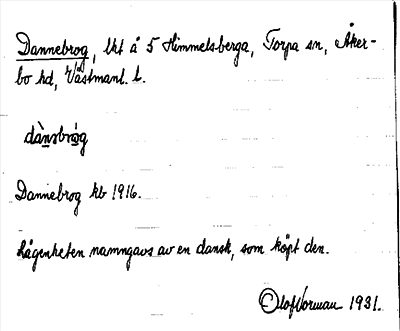 Dannebrog, lht å 5 Himmelsberga, Torpa sn, Åker-
bo hd, Västmanl. l.
dànsbrọg
Dannebrog kb 1916.
Lägenheten namngavs av en dansk, som köpt den.
Olof Norman 1931.